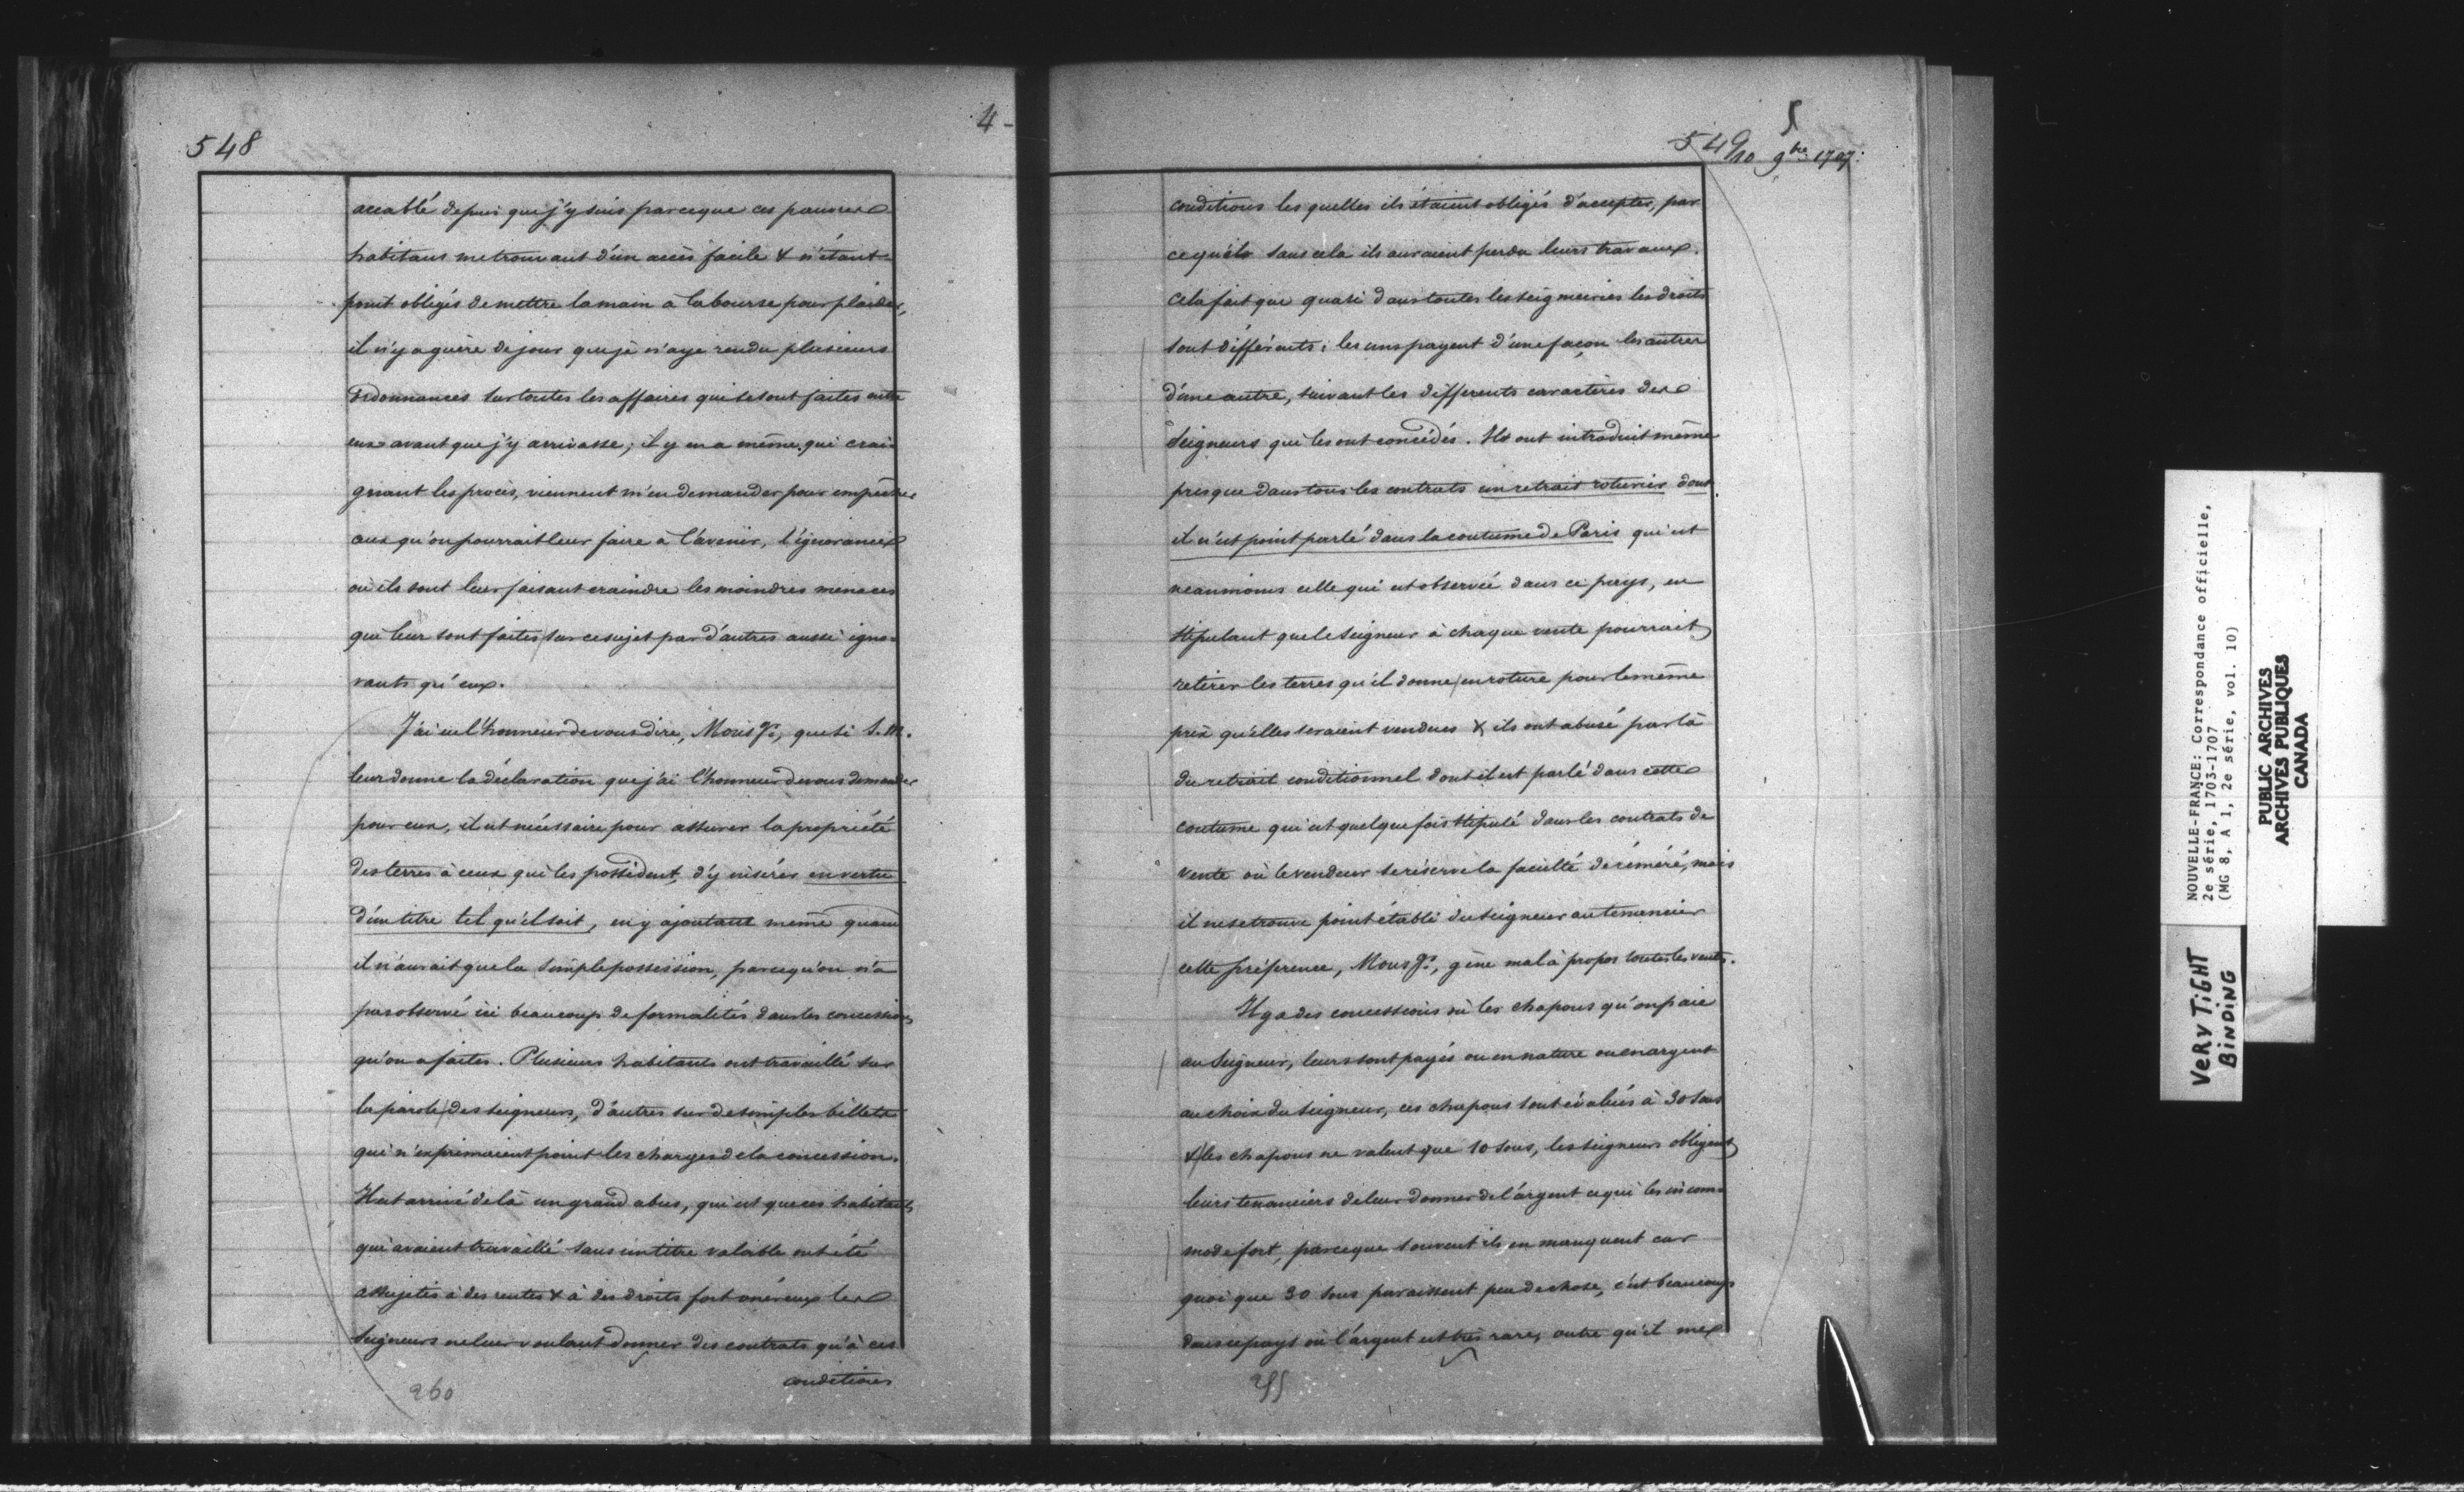 548
4-
accablé depuis que j'y suis parceque ces pauvres
habitans me trouvant d'un accès facile & n'étant
point obligés de mettre la main à la bourse pour plaider,
il n'y a guère de jour que je n'aye rendu plusieurs
Ordonnances sur toutes les affaires qui se sont faites entre
eux avant que j'y arrivasse; il y en a même qui crai-
gnant les procès, viennent m'en demander pour empêcher
ceux qu'on pourrait leur faire à l'avenir, l'ignorance
où ils sont leur faisant craindre les moindres menaces
qui leur sont faites sur ce sujet par d'autres aussi igno-
rants qu'eux.
J'ai eu l'honneur de vous dire, Monsgr., que si S. M.
leur donne la déclaration que j'ai l'honneur de vous demander
pour eux, il est nécessaire pour assurer la propriété
des terres à ceux qui les possèdent, d'y insérer en vertu
d'un titre tel qu'il soit, en y ajoutant même quand
il n'aurait que la simple possession, parcequ'on n'a
pas observé ici beaucoup de formalités dans les concessions
qu'on a faites. Plusieurs habitants ont travaillé sur
la parole des seigneurs, d'autres sur de simples billets
qui n'exprimaient point les charges de la concession.
Il est arrivé de là un grand abus, qui est que ces habitants
qui avaient travaillé sans un titre valable ont été
assujetis à des rentes & à des droits fort onéreux les
Seigneurs ne leur voulant donner des contrats qu'à ces
conditions
260
5
549
10 9bre 1707.
conditions les quelles ils étaient obligés d'accepter, par
cequ'ils sans cela ils auraient perdu leurs travaux.
Cela fait que quasi dans toutes les seigneuries les droits
sont différents; les uns payent d'une façon les autres
d'une autre, suivant les differents caractères des
Seigneurs qui les ont concédés. Ils ont introduit même
presque dans tous les contrats un retrait roturier dont
il n'est point parlé dans la coutume de Paris qui est
neanmoins celle qui est observée dans ce pays, en
stipulant que le Seigneur à chaque vente pourrait
retirer les terres qu'il donne en roture pour le même
prix qu'elles seraient vendues & ils ont abusé par là
du retrait conditionnel dont il est parlé dans cette
coutume qui est quelque fois stipulé dans les contrats de
vente où le vendeur se réserve la faculté de réméré, mais
il ne se trouve point établi du seigneur au tenancier
cette préférence, Monsgr., gène mal à propos toutes les ventes.
Il y a des concessions où les chapons qu'on paie
au Seigneur, leurs sont payés ou en nature ou en argent
au choix du Seigneur, ces chapons sont évalués à 30 sous
& les chapons ne valent que 10 sous, les seigneurs obligent
leurs tenanciers de leur donner de l'argent ce qui les incom-
mode fort, parceque souvent ils en manquent car
quoi que 30 sous paraissent peu de chose, c'est beaucoup
dans ce pays où l'argent est très rare, outre qu'il me
NOUVELLE-FRANCE: Correspondance officielle,
2e série, 1703-1707
(MG 8, A 1, 2e série, vol. 10)
PUBLIC ARCHIVES
ARCHIVES PUBLIQUES
CANADA
VERY TIGHT
BINDING